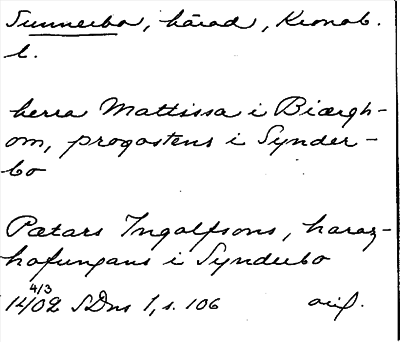 Sunnerbo, härad, Kronob.
l.
herra Mattissa i Biærgh-
om, progastens i Synder-
bo
Pætars Ingolfsons, haraz-
hofungans i Synderbo
4/3
1402 SDns 1, s. 106